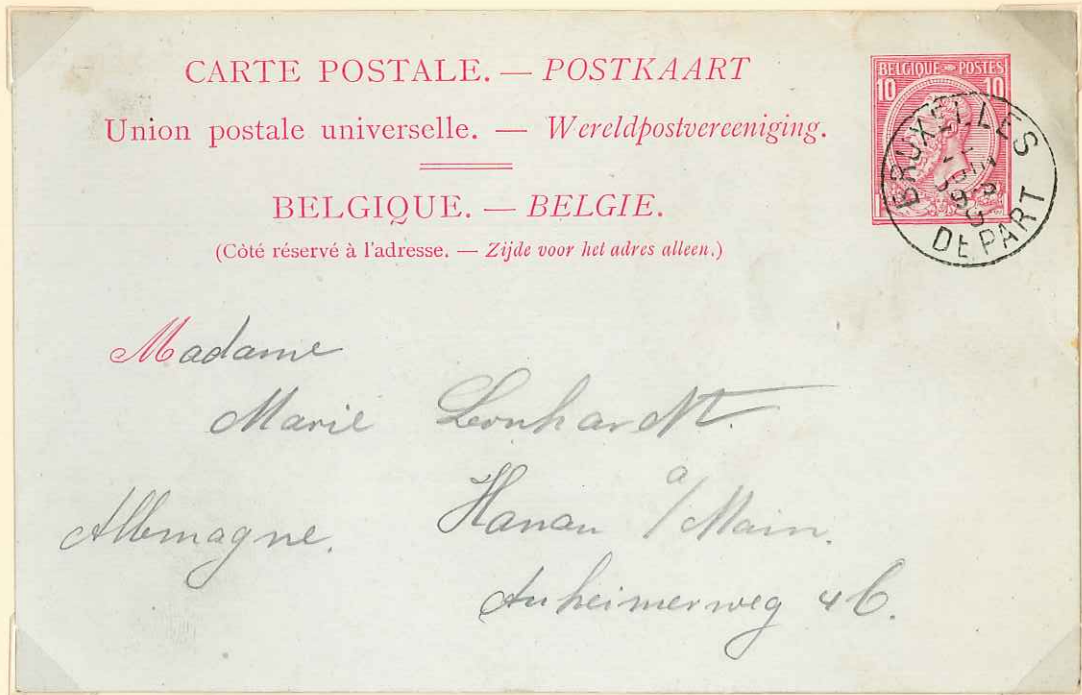 CARTE POSTALE. — POSTKAART
Union postale universelle. — Wereldpostvereeniging.
BELGIQUE. — BELGIE.
(Côté réservé à l'adresse. — Zijde voor het adres alleen.)
BELGIQUE POSTES
10 10
BRUXELLES
DEPART
Madame
Marie Leonhardt.
Hanau a/Main.
Allemagne.